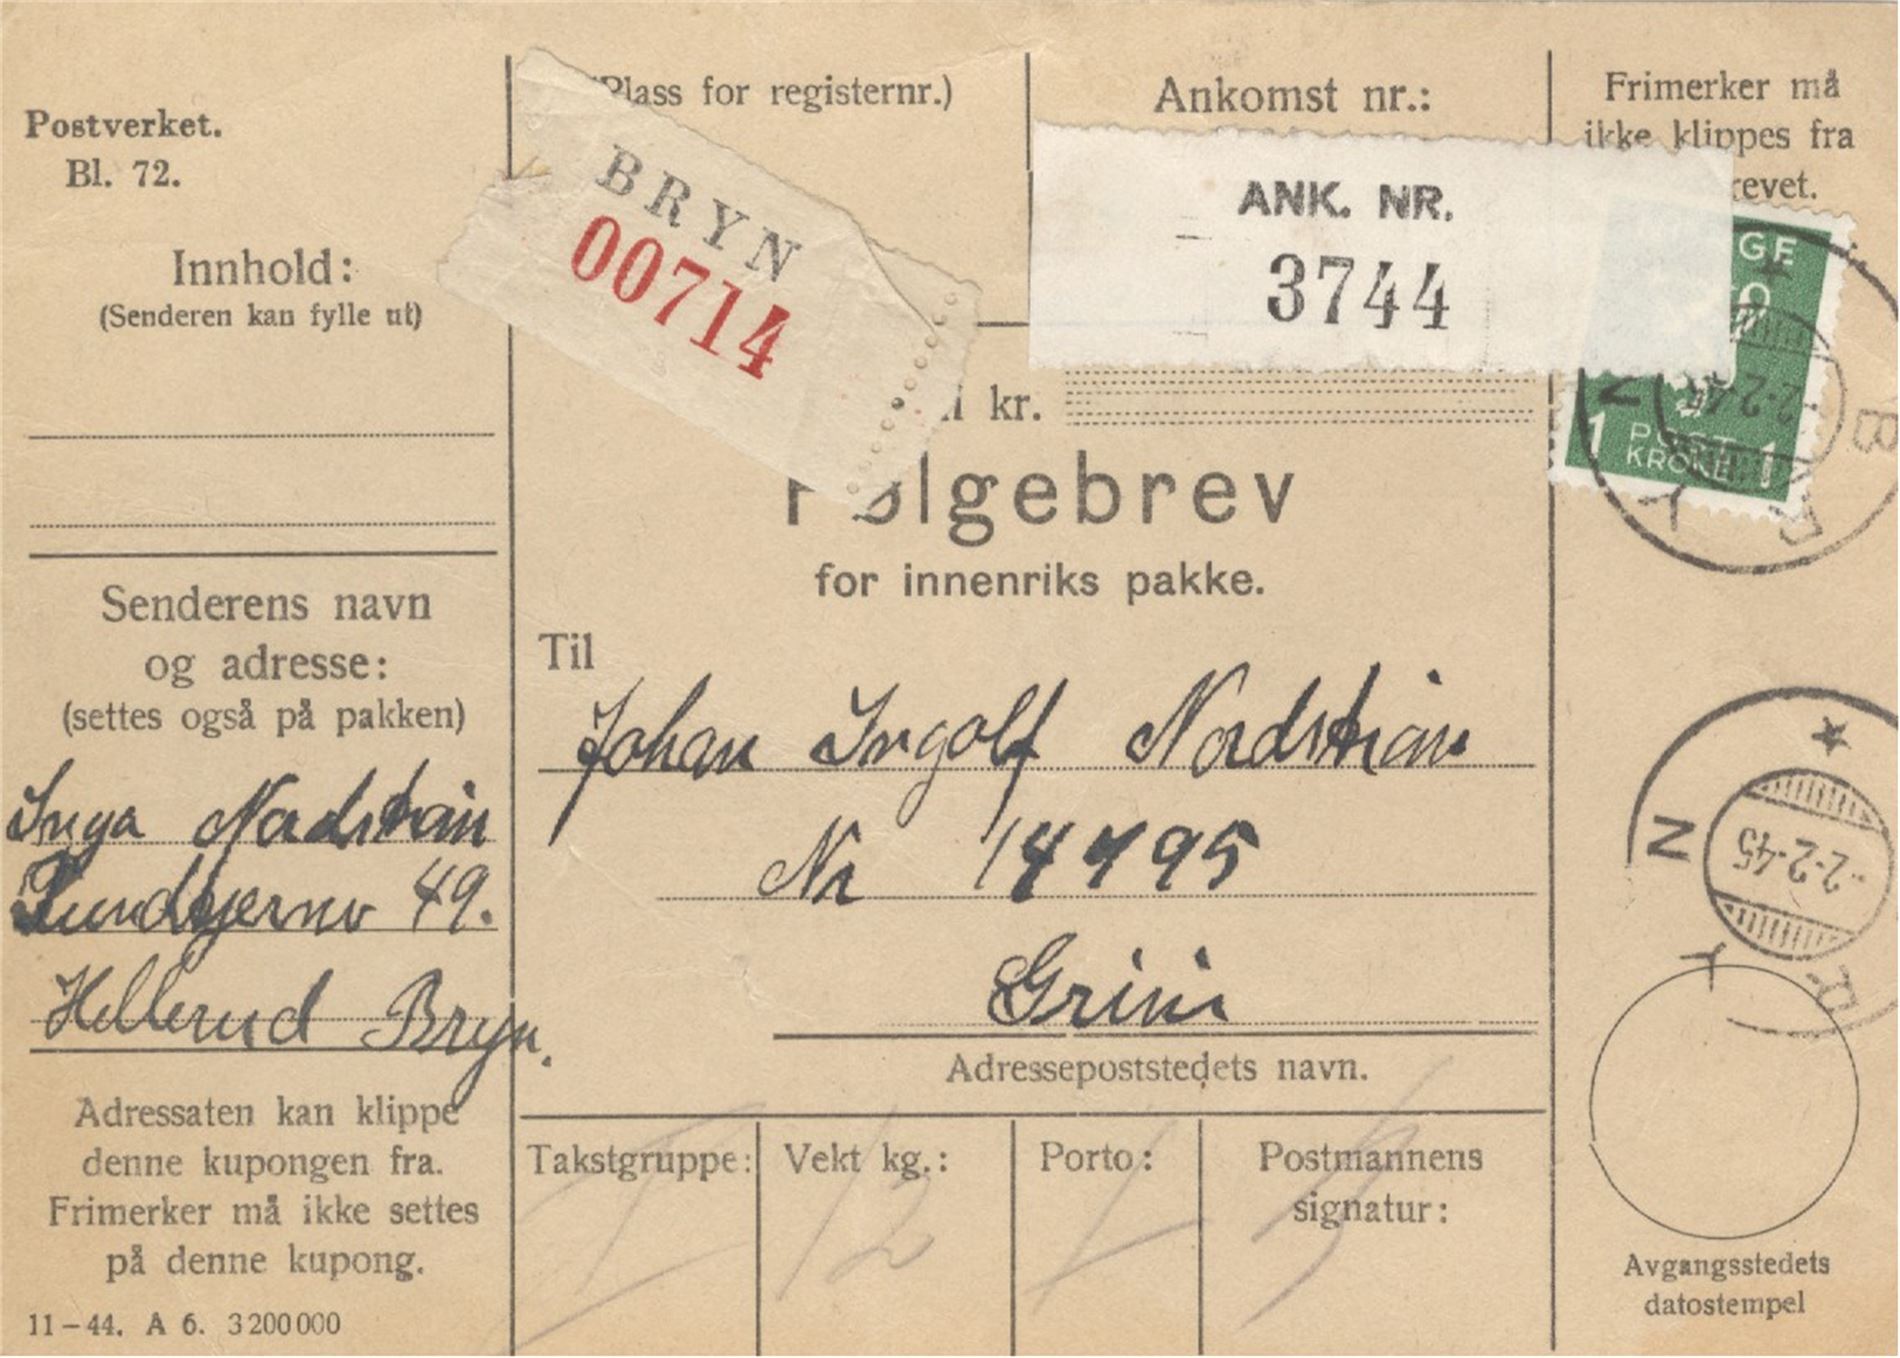 Postverket.
Bl. 72.
Innhold:
(Senderen kan fylle ut)
Senderens navn
og adresse:
(settes også på pakken)
Inga Nordstrøm
49.
Hellerud Bryn.
Adressaten kan klippe
denne kupongen fra.
Frimerker må ikke settes
på denne kupong.
11-44. A 6. 3200000
(Plass for registernr.)
BRYN
00714
Ankomst nr.:
ANK. NR.
3744
kr.
Følgebrev
for innenriks pakke.
Til
Johan Ingolf Nordstrøm
Nr 14795
Grini
Adressepoststedets navn.
Takstgruppe:
Vekt kg.:
12
Porto:
1
Postmannens
signatur:
Frimerker må
ikke klippes fra
revet.
1 POST 1
KRONE
BRYN
2-2-45
BRYN
2-2-45
Avgangsstedets
datostempel